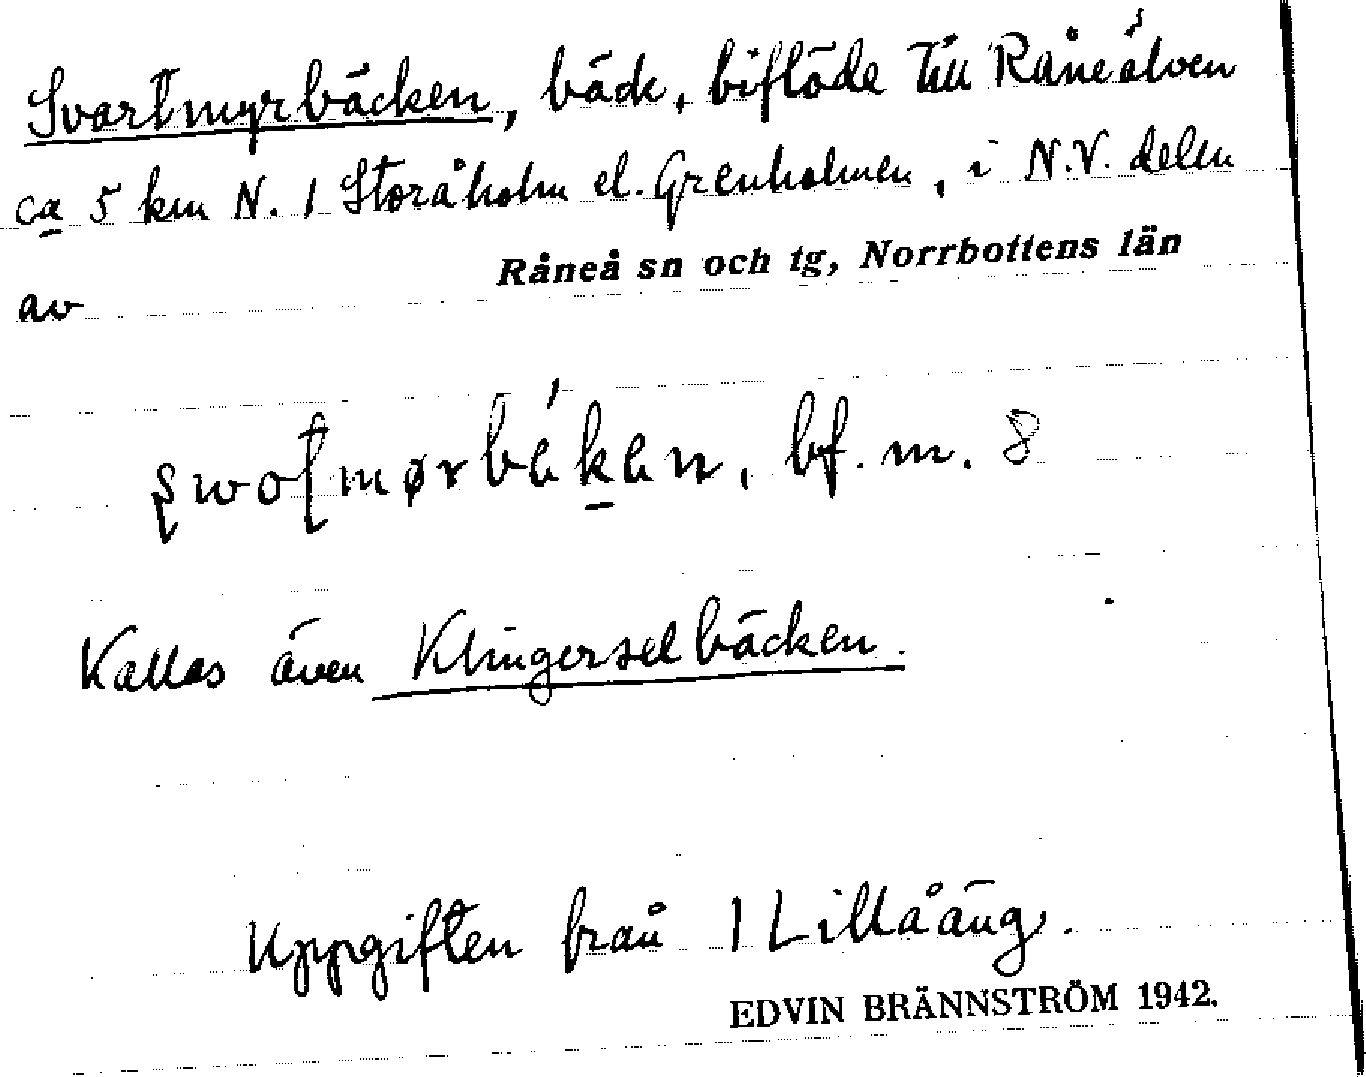 Svartmyrbäcken, bäck, biflöde till Råneälven
ca 5 km N. 1 Storåholm el. Grenholmen, i N.V. delen
av Råneå sn och tg, Norrbottens län
bf. m. 8
Kallas även Klingerselbäcken.
Uppgiften från 1 Lillåäng.
EDVIN BRÄNNSTRÖM 1942.